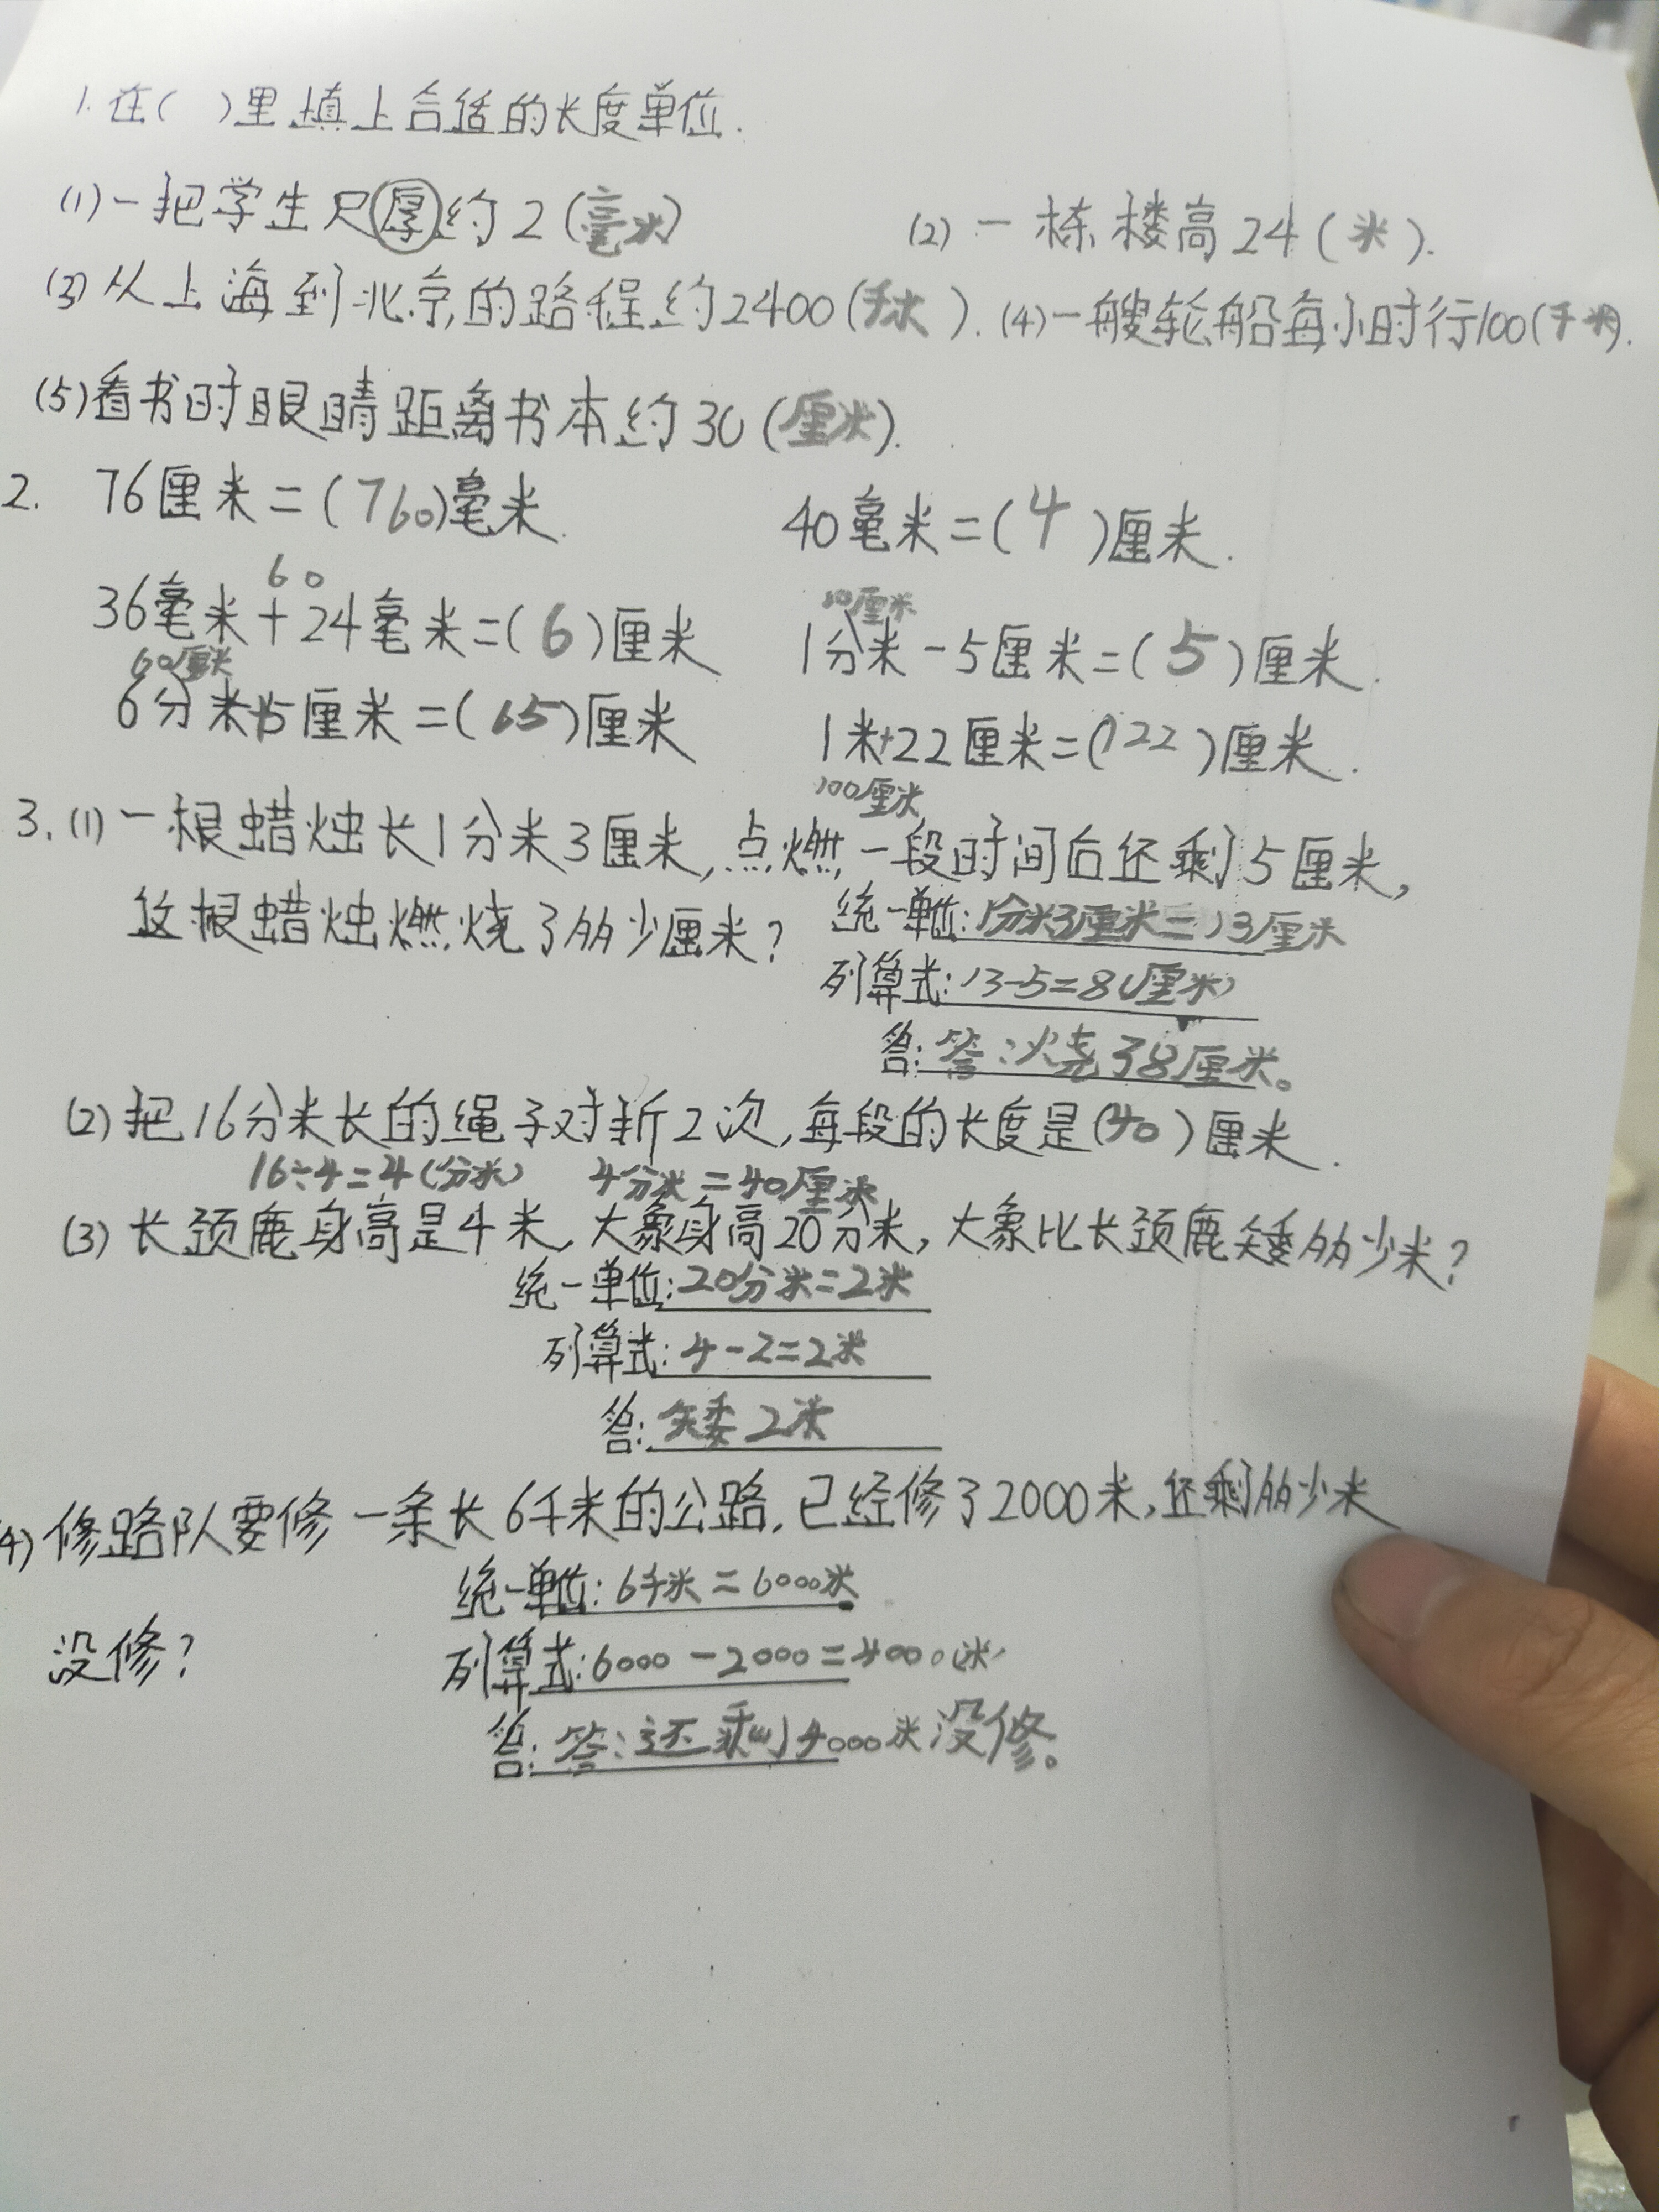 1.在( )里填上合适的长度单位.
(1)一把学生尺厚约2(毫米) (2)一栋楼高24(米).
(3)从上海到北京的路程约2400(千米). (4)一艘轮船每小时行100(千米).
(5)看书时眼睛距离书本约30(厘米).
2. 76厘米=(760)毫米. 40毫米=(4)厘米.
60 10厘米
36毫米+24毫米=(6)厘米 1分米-5厘米=(5)厘米.
60厘米
6分米+5厘米=(65)厘米 1米+22厘米=(122)厘米.
100厘米
3.(1)一根蜡烛长1分米3厘米,点燃一段时间后还剩5厘米,
这根蜡烛燃烧了多少厘米? 统一单位:1分米3厘米=13厘米
列算式:13-5=8(厘米)
答:答:烧了8厘米。
(2)把16分米长的绳子对折2次,每段的长度是(40)厘米.
16÷4=4(分米) 4分米=40厘米
(3)长颈鹿身高是4米,大象身高20分米,大象比长颈鹿矮多少米?
统一单位:20分米=2米
列算式:4-2=2米
答:矮2米
(4)修路队要修一条长6千米的公路,已经修了2000米,还剩多少米
统一单位:6千米=6000米
没修? 列算式:6000-2000=4000(米)
答:答:还剩4000米没修。